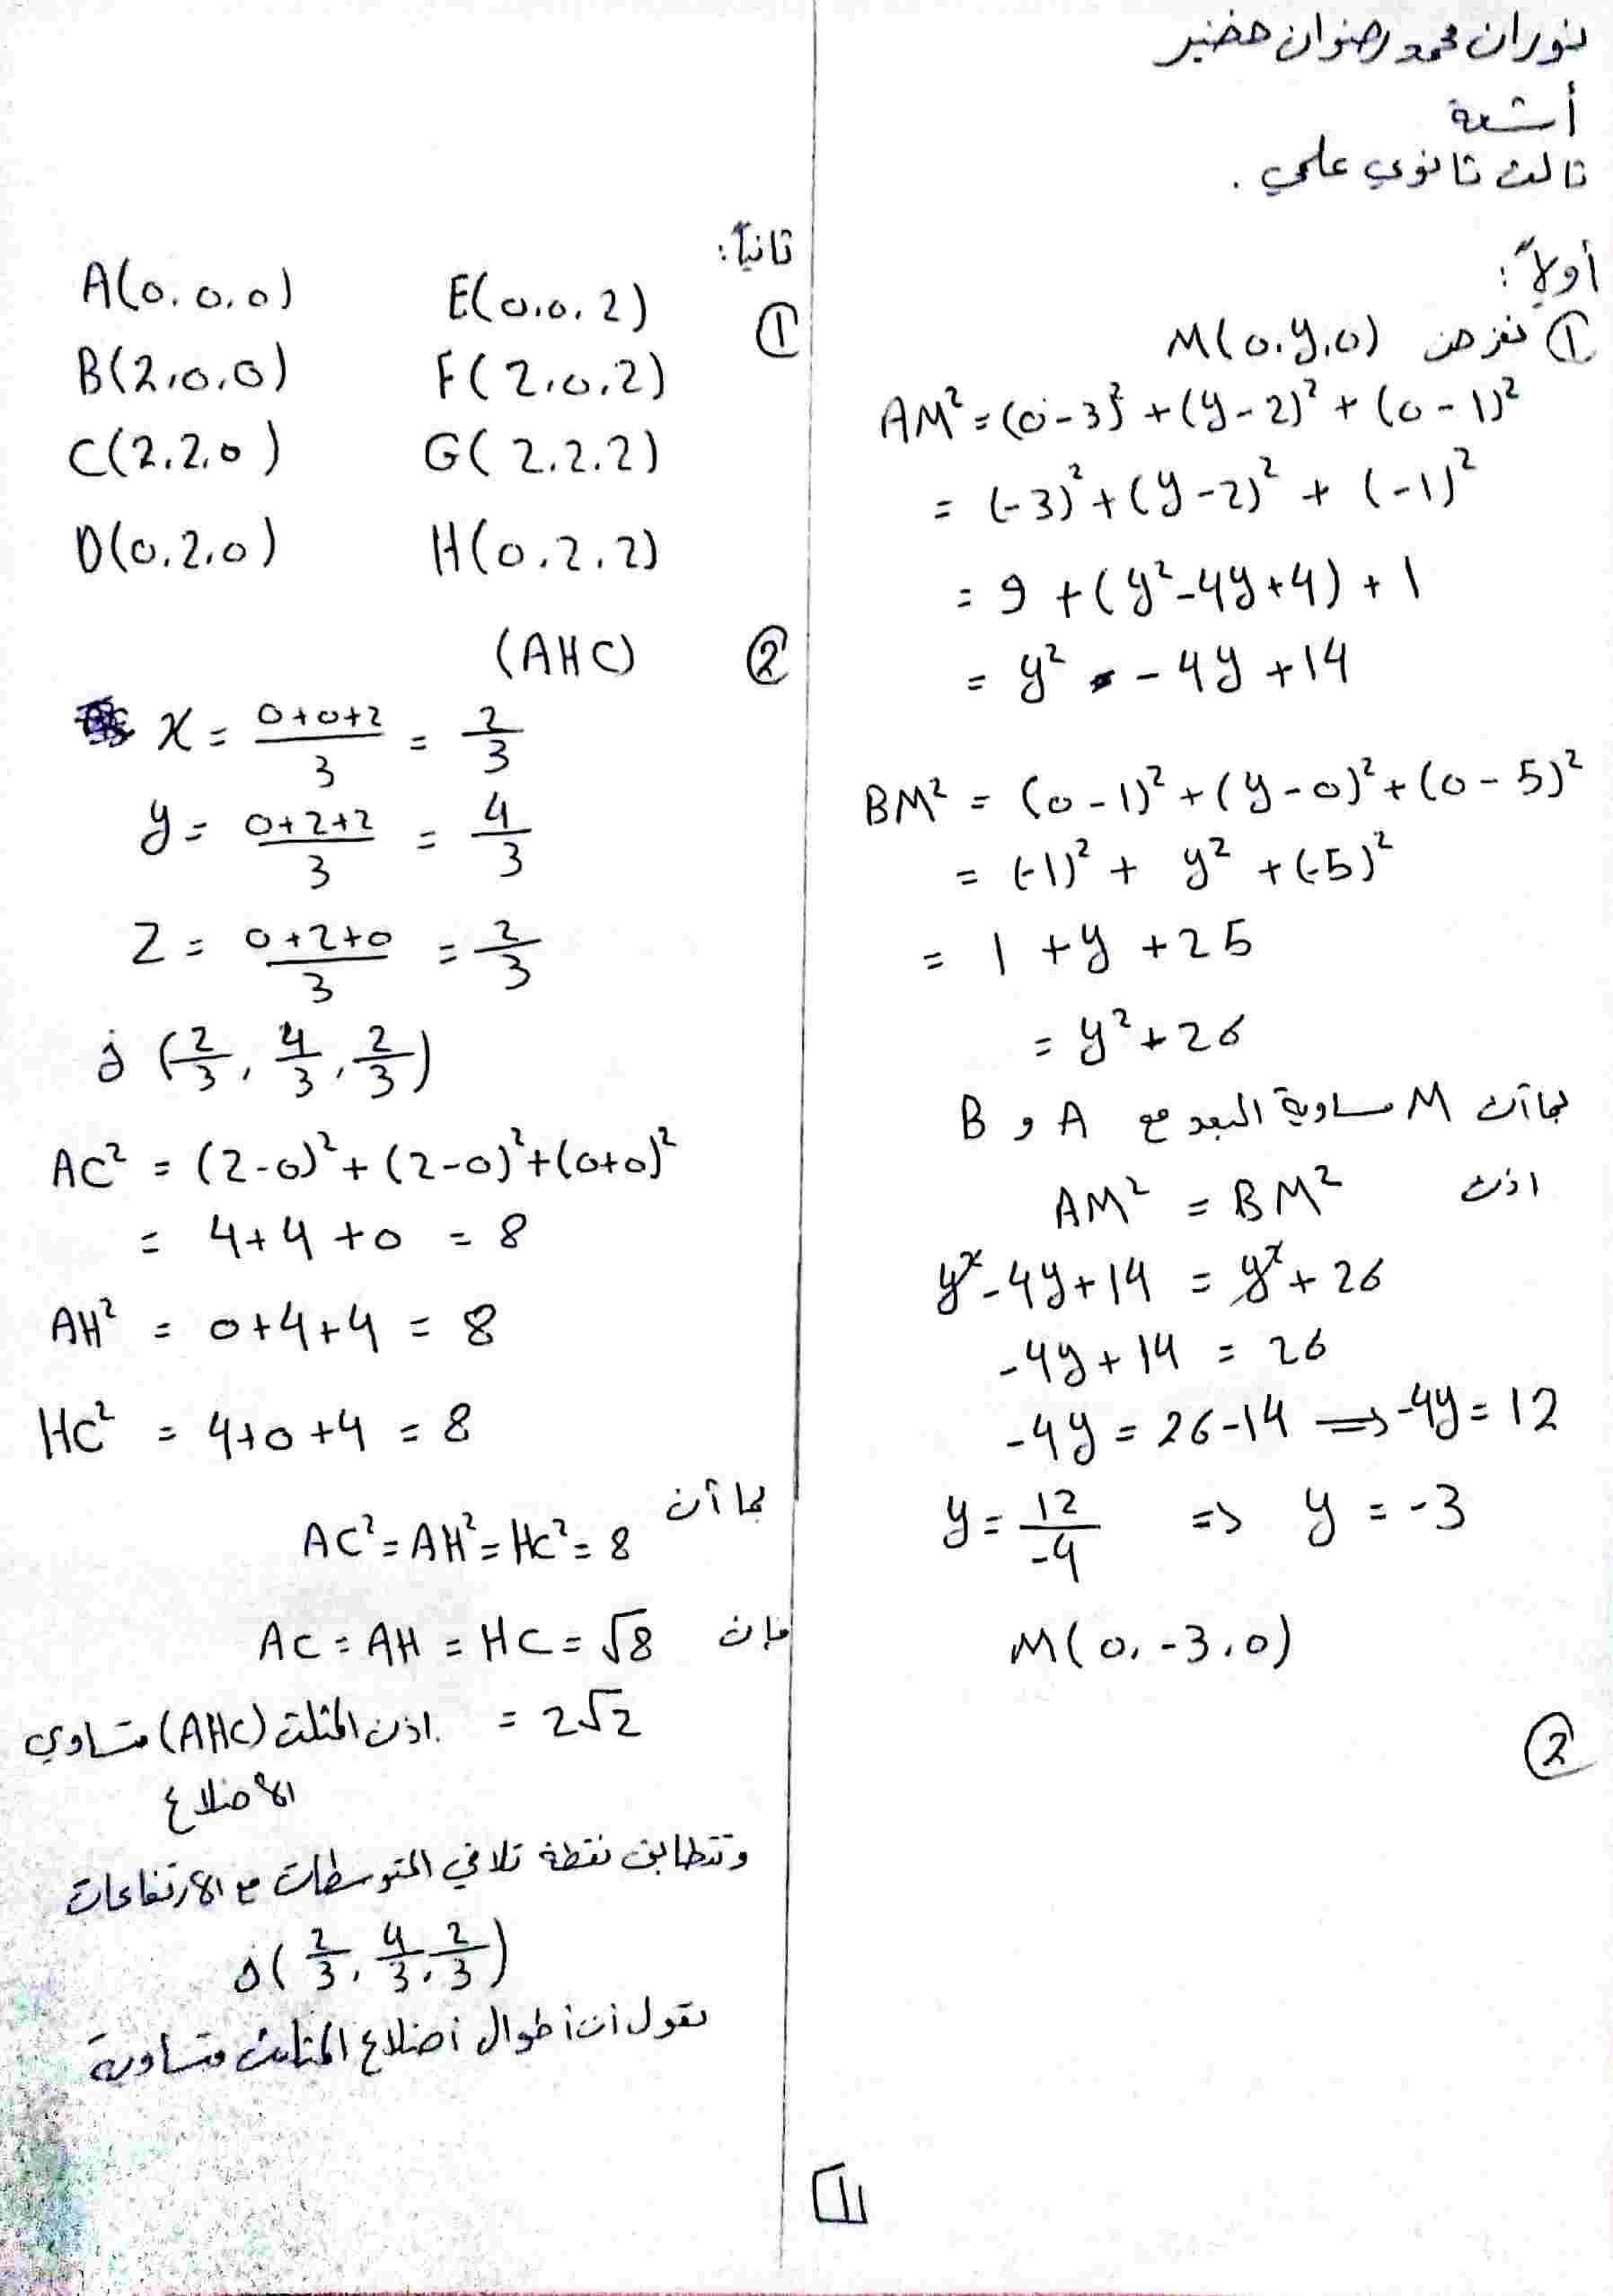 نوران محمد رضوان خضير
أشعة
ثالث ثانوي علمي .
أولاً :
① نفرض M(0,y,0)
AM² = (0-3)² + (y-2)² + (0-1)²
= (-3)² + (y-2)² + (-1)²
= 9 + (y²-4y+4) + 1
= y² - 4y + 14
BM² = (0-1)² + (y-0)² + (0-5)²
= (-1)² + y² + (-5)²
= 1 + y + 25
= y² + 26
بما أن M مساوية البعد مع A و B
اذن AM² = BM²
y² - 4y + 14 = y² + 26
-4y + 14 = 26
-4y = 26-14 ⟹ -4y = 12
y = 12/-4 => y = -3
M(0, -3, 0)
②
ثانياً :
①
A(0,0,0) E(0,0,2)
B(2,0,0) F(2,0,2)
C(2,2,0) G(2,2,2)
D(0,2,0) H(0,2,2)
② (AHC)
x = 0+0+2/3 = 2/3
y = 0+2+2/3 = 4/3
Z = 0+2+0/3 = 2/3
(2/3, 4/3, 2/3)
AC² = (2-0)² + (2-0)² + (0+0)²
= 4+4+0 = 8
AH² = 0+4+4 = 8
HC² = 4+0+4 = 8
بما أن
AC² = AH² = HC² = 8
فإن AC = AH = HC = √8
= 2√2 اذن المثلث (AHC) متساوي
الأضلاع
وتتطابق نقطة تلاقي المتوسطات مع الارتفاعات
(2/3, 4/3, 2/3)
نقول أن أطوال أضلاع المثلث متساوية
1